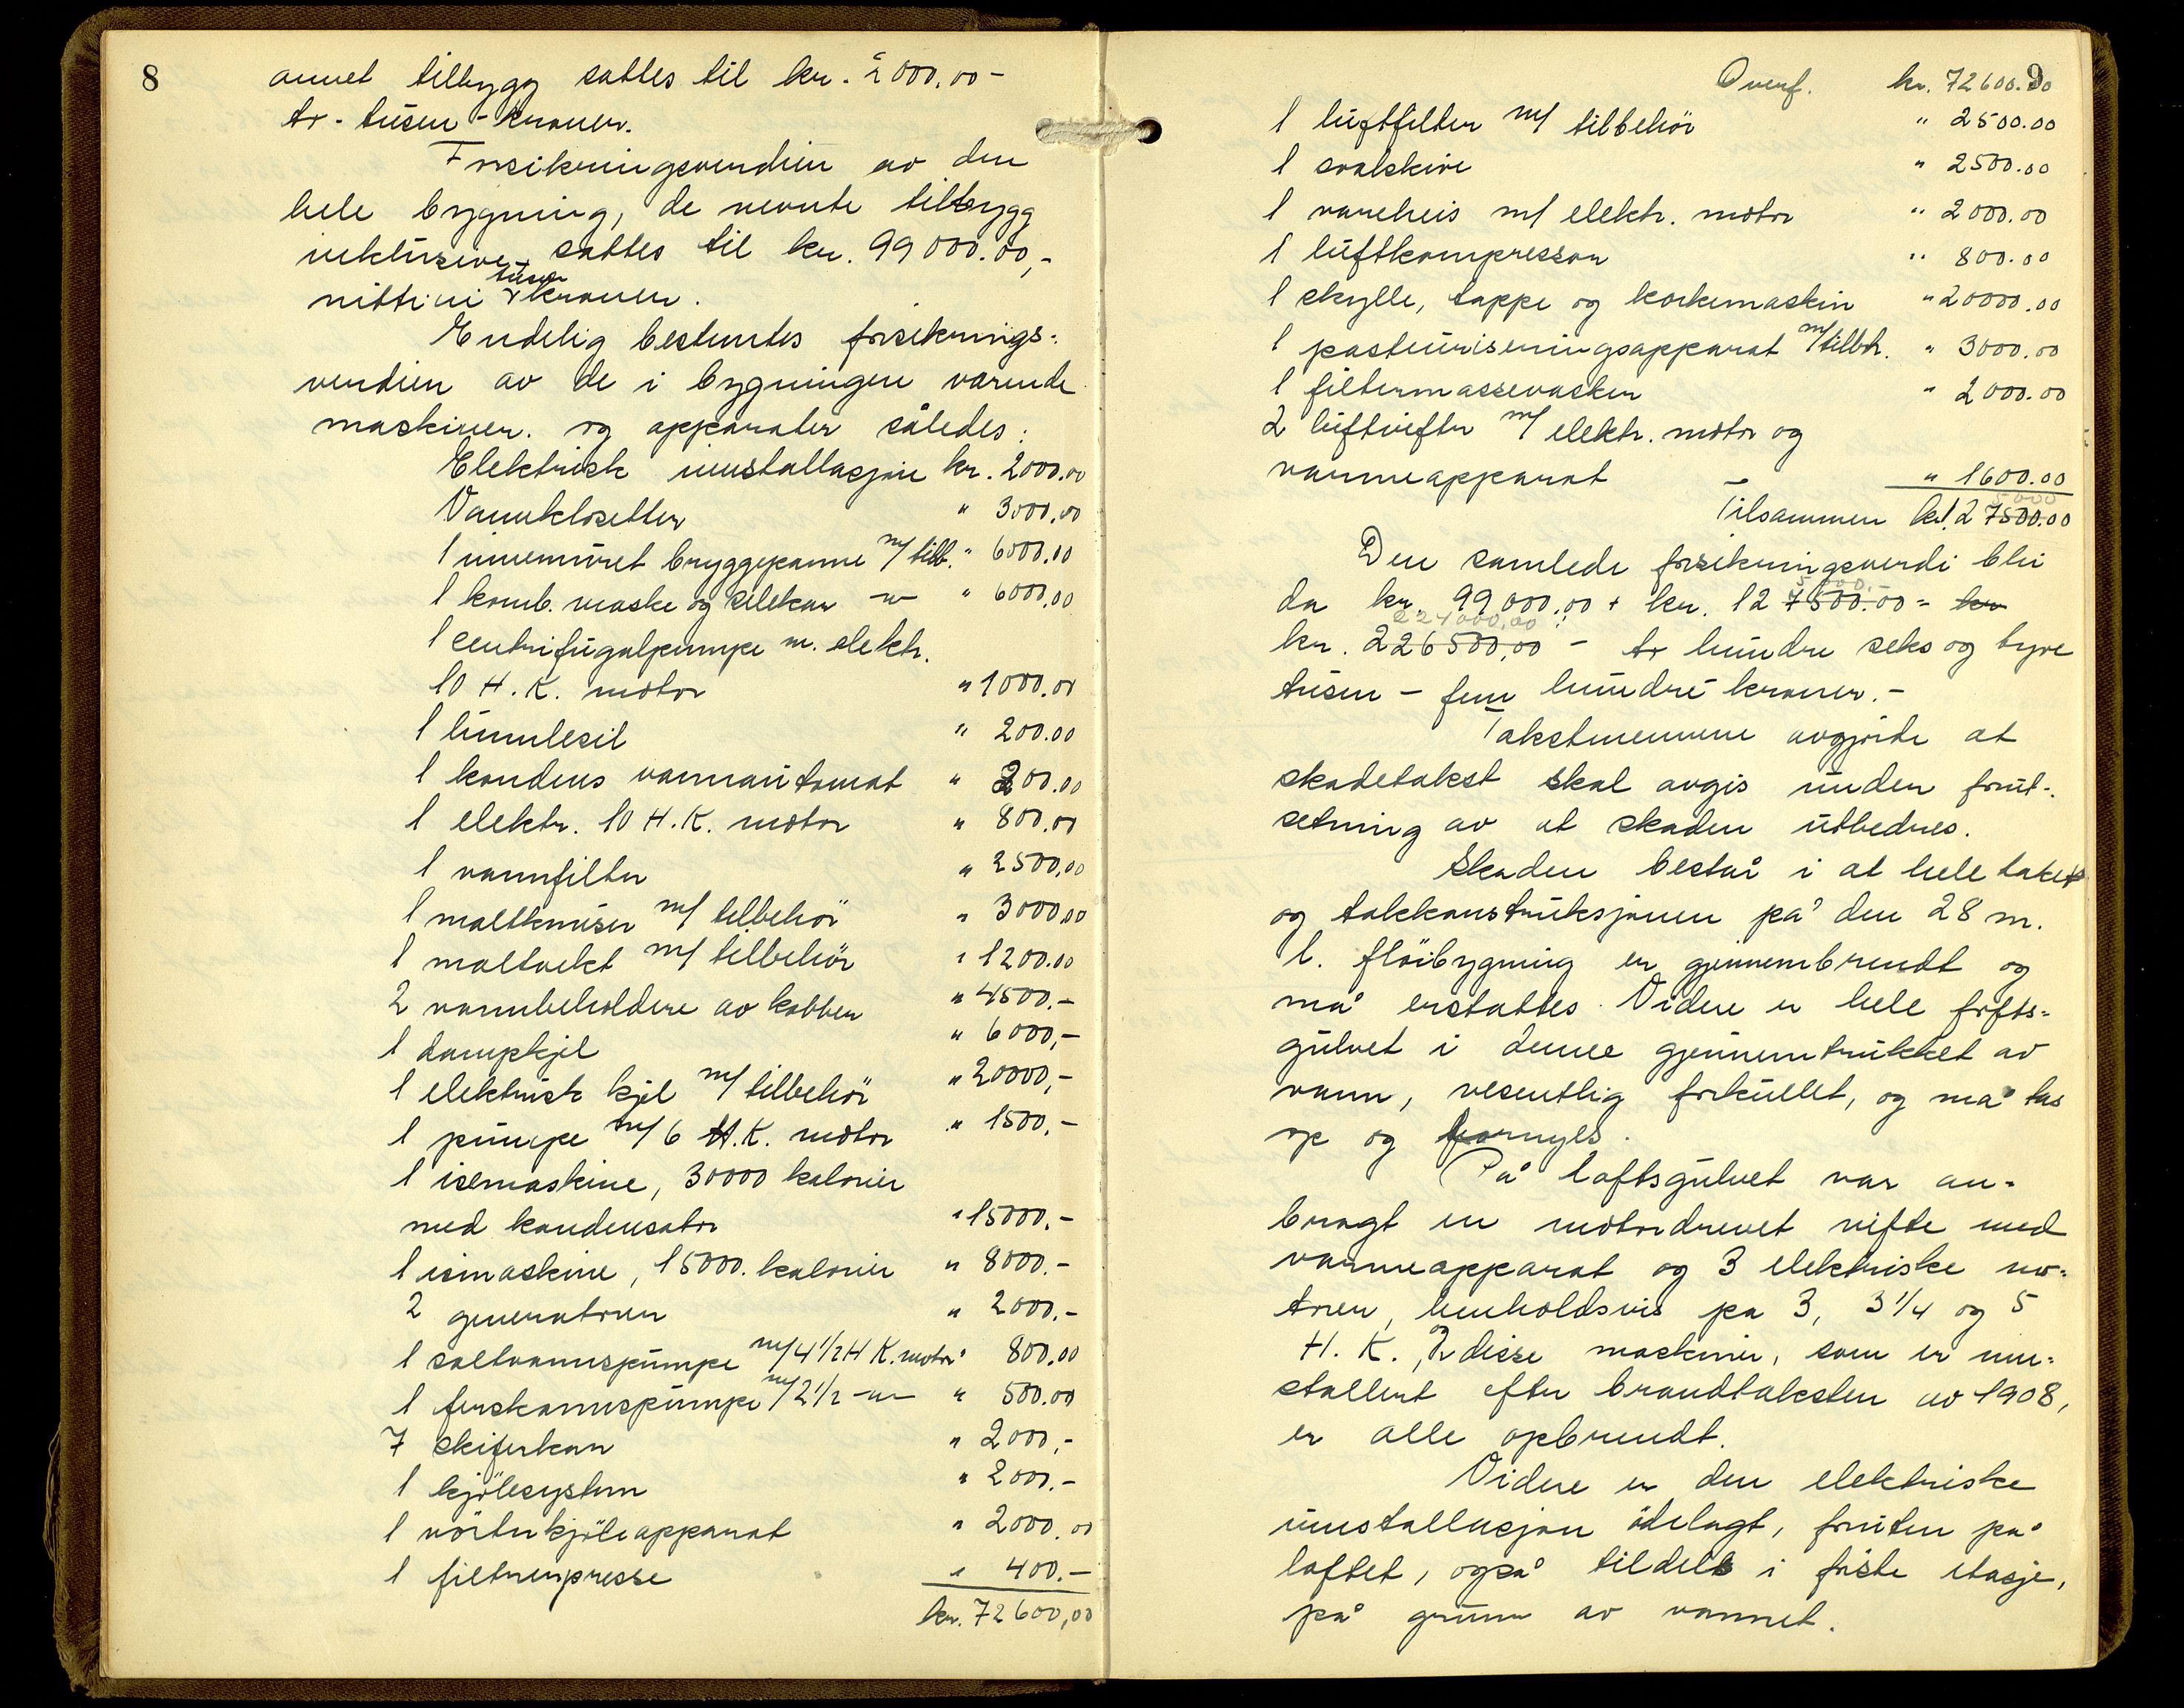 8
annet tilbygg sattes til kr. 2000,00 -
to - tusen - kroner.
Forsikringsverdien av den
hele bygning, de nevnte tilbygg
inklusive, sattes til kr. 99000.00,-
nittini tusen kroner.
Endelig bestemtes forsikrings-
verdien av de i bygningen værende
maskiner. og apparater således:
Elektrisk innstallasjon kr. 2000.00
Vannklosetter " 3000.00
1 innemuret bryggepanne m/ tilb. " 6000.00
1 komb. maske og silekar -"- " 6000.00
1 centrifugalpumpe m. elektr.
10 H.K. motor " 1000.00
1 humlesil " 200.00
1 kondens vannautomat " 200.00
1 elektr. 10 H.K. motor " 800.00
1 vannfilter " 2500.00
1 maltknuser m/ tilbehör " 3000.00
1 maltvekt m/ tilbehör " 1200.00
2 vannbeholdere av kobber " 4500.-
1 dampkjel " 6000,-
1 elektrisk kjel m/ tilbehör " 20000,-
1 pumpe m/ 6 H.K. motor " 1500.-
1 isemaskine, 30000 kalorier
med kondensator " 15000.-
1 ismaskine, 15000. kalorier " 8000.-
2 generatorer " 2000.-
1 saltvannspumpe m/ 4 1/2 H K. motor " 800.00
1 ferskvannspumpe m/ 2 1/2 -"- " 500.00
7 skiferkar " 2000,-
1 kjölesystem " 2000.-
1 vörterkjöleapparat " 2000.00
1 filterpresse " 400.-
kr. 72600,00
9
Overf. kr. 72600.00
1 luftfilter m/ tilbehör " 2500.00
1 svalskive " 2500.00
1 vareheis m/ elektr. motor " 2000.00
1 luftkompressor " 800.00
1 skylle, tappe og korkemaskin " 20000.00
1 pasteuriseringsapparat m/ tilbh. " 3000.00
1 filtermassevasker " 2000.00
2 luftvifter m/ elektr. motor og
varmeapparat " 1600.00
5000
Tilsammen kr. 127500.00
Den samlede forsikringsverdi blir
5000.-
da kr. 99000.00 + kr. 127500.00 = kr
224000,00
kr. 226500,00 - to hundre seks og tyve
tusen - fem hundre kroner.-
Takstmennene avgjorde at
skadetakst skal avgis under forut-
setning av at skaden utbedres.
Skaden består i at hele taket
og takkonstruksjonen på den 28 m.
l. flöibygning er gjennembrendt og
må erstattes. Videre er hele lofts-
gulvet i denne gjennemtrukket av
vann, vesentlig forkullet, og må tas
op og fornyes.
På loftsgulvet var an-
bragt en motordrevet vifte med
varmeapparat og 3 elektriske mo-
torer, henholdsvis på 3, 3 1/4 og 5
H. K., og disse maskiner, som er inn-
stallert efter brandtaksten av 1908,
er alle opbrendt.
Videre er den elektriske
innstallasjon ödelagt, foruten på
loftet, også tildels i förste etasje,
på grunn av vannet.